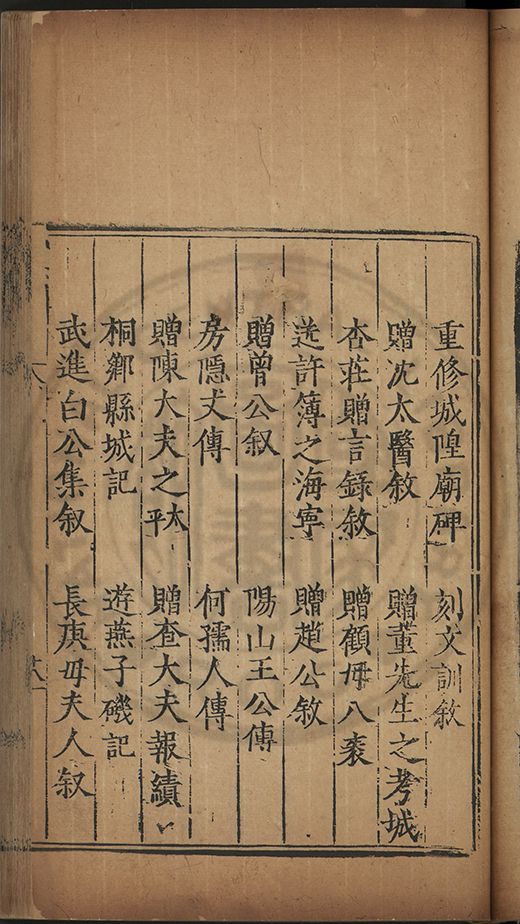 重修城隍廟碑　刻文訓敘
贈沈太醫敘　贈董先生之考城
杏莊贈言錄敘　贈顧母八袠
送許簿之海寧　贈趙公敘
贈曾公叙　陽山王公傳
房隱丈傳　何孺人傳
贈陳大夫之太平　贈查大夫報績
桐鄉縣城記　遊燕子磯記
武進白公集叙　長庚母夫人叙